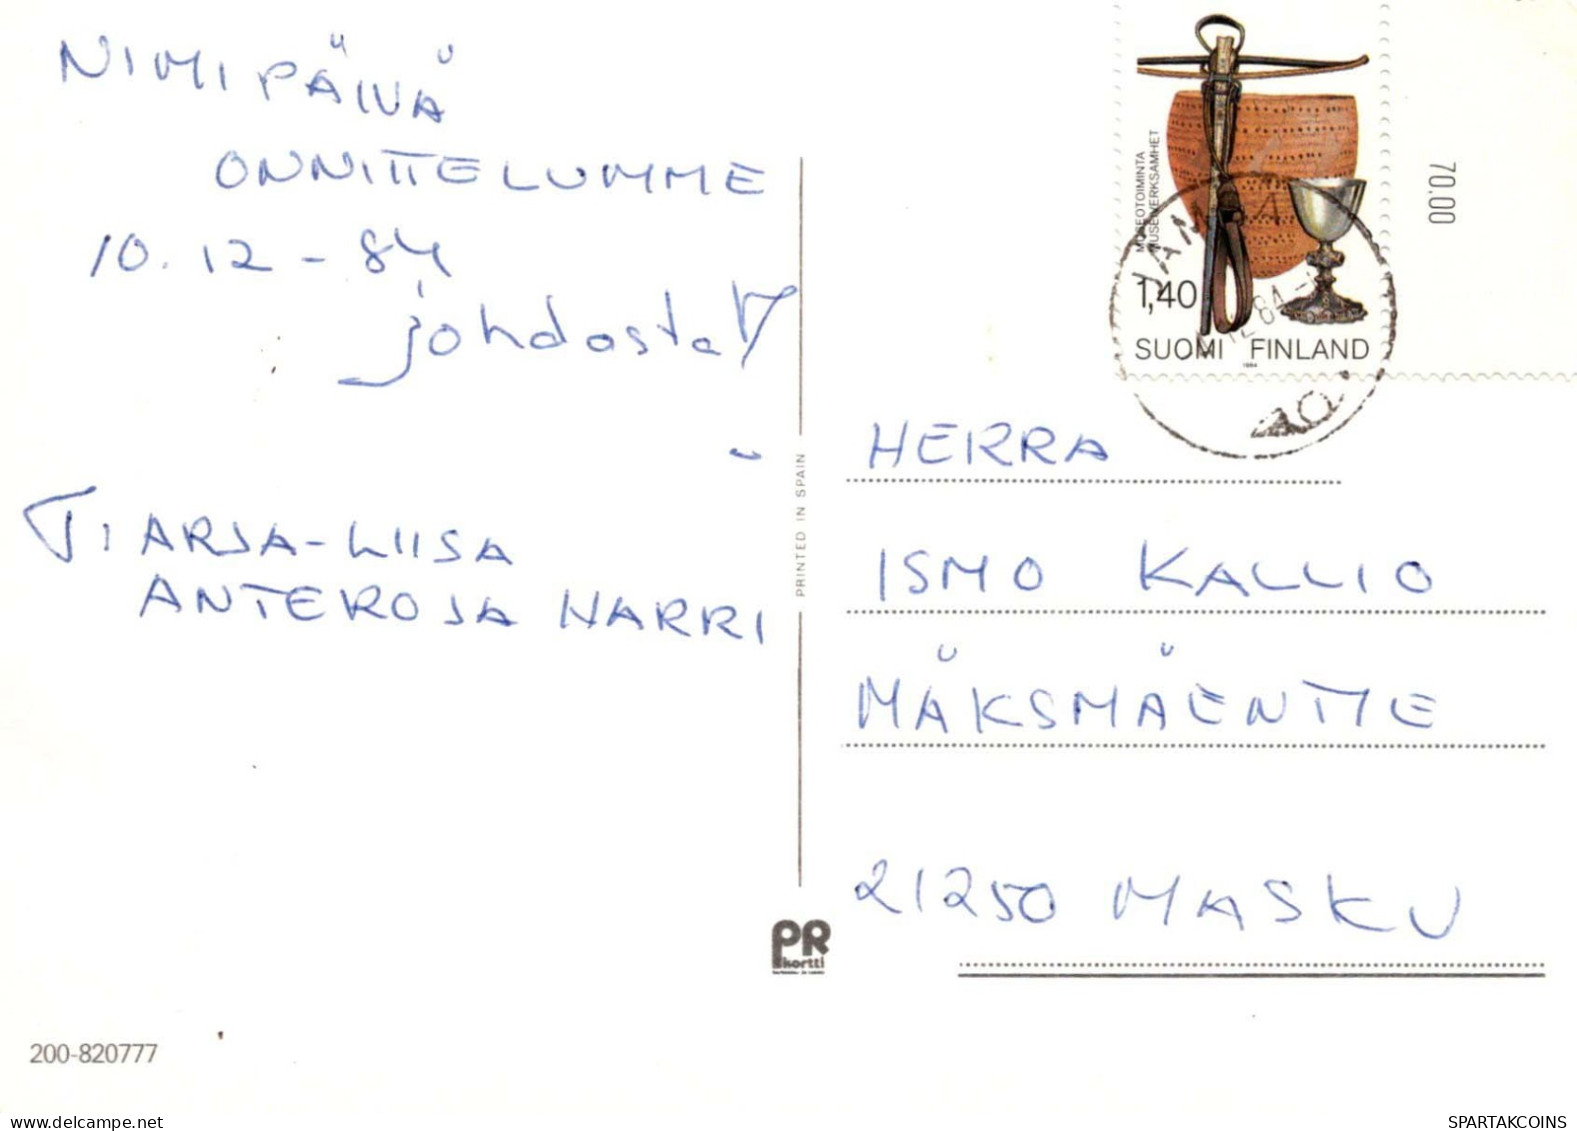 NIMIPÄIVÄ
ONNITTELUMME
10.12-84
johdosta
T: ARJA-LIISA
ANTERO JA HARRI
PRINTED IN SPAIN
PR
kortti
200-820777
MUSEOTOIMINTA
MUSEIVERKSAMHET
1,40
SUOMI FINLAND
1984
70.00
HERRA
ISMO KALLIO
MÄKSMÄENTIE
21250 MASKU
delcampe.net
SPARTAKCOINS